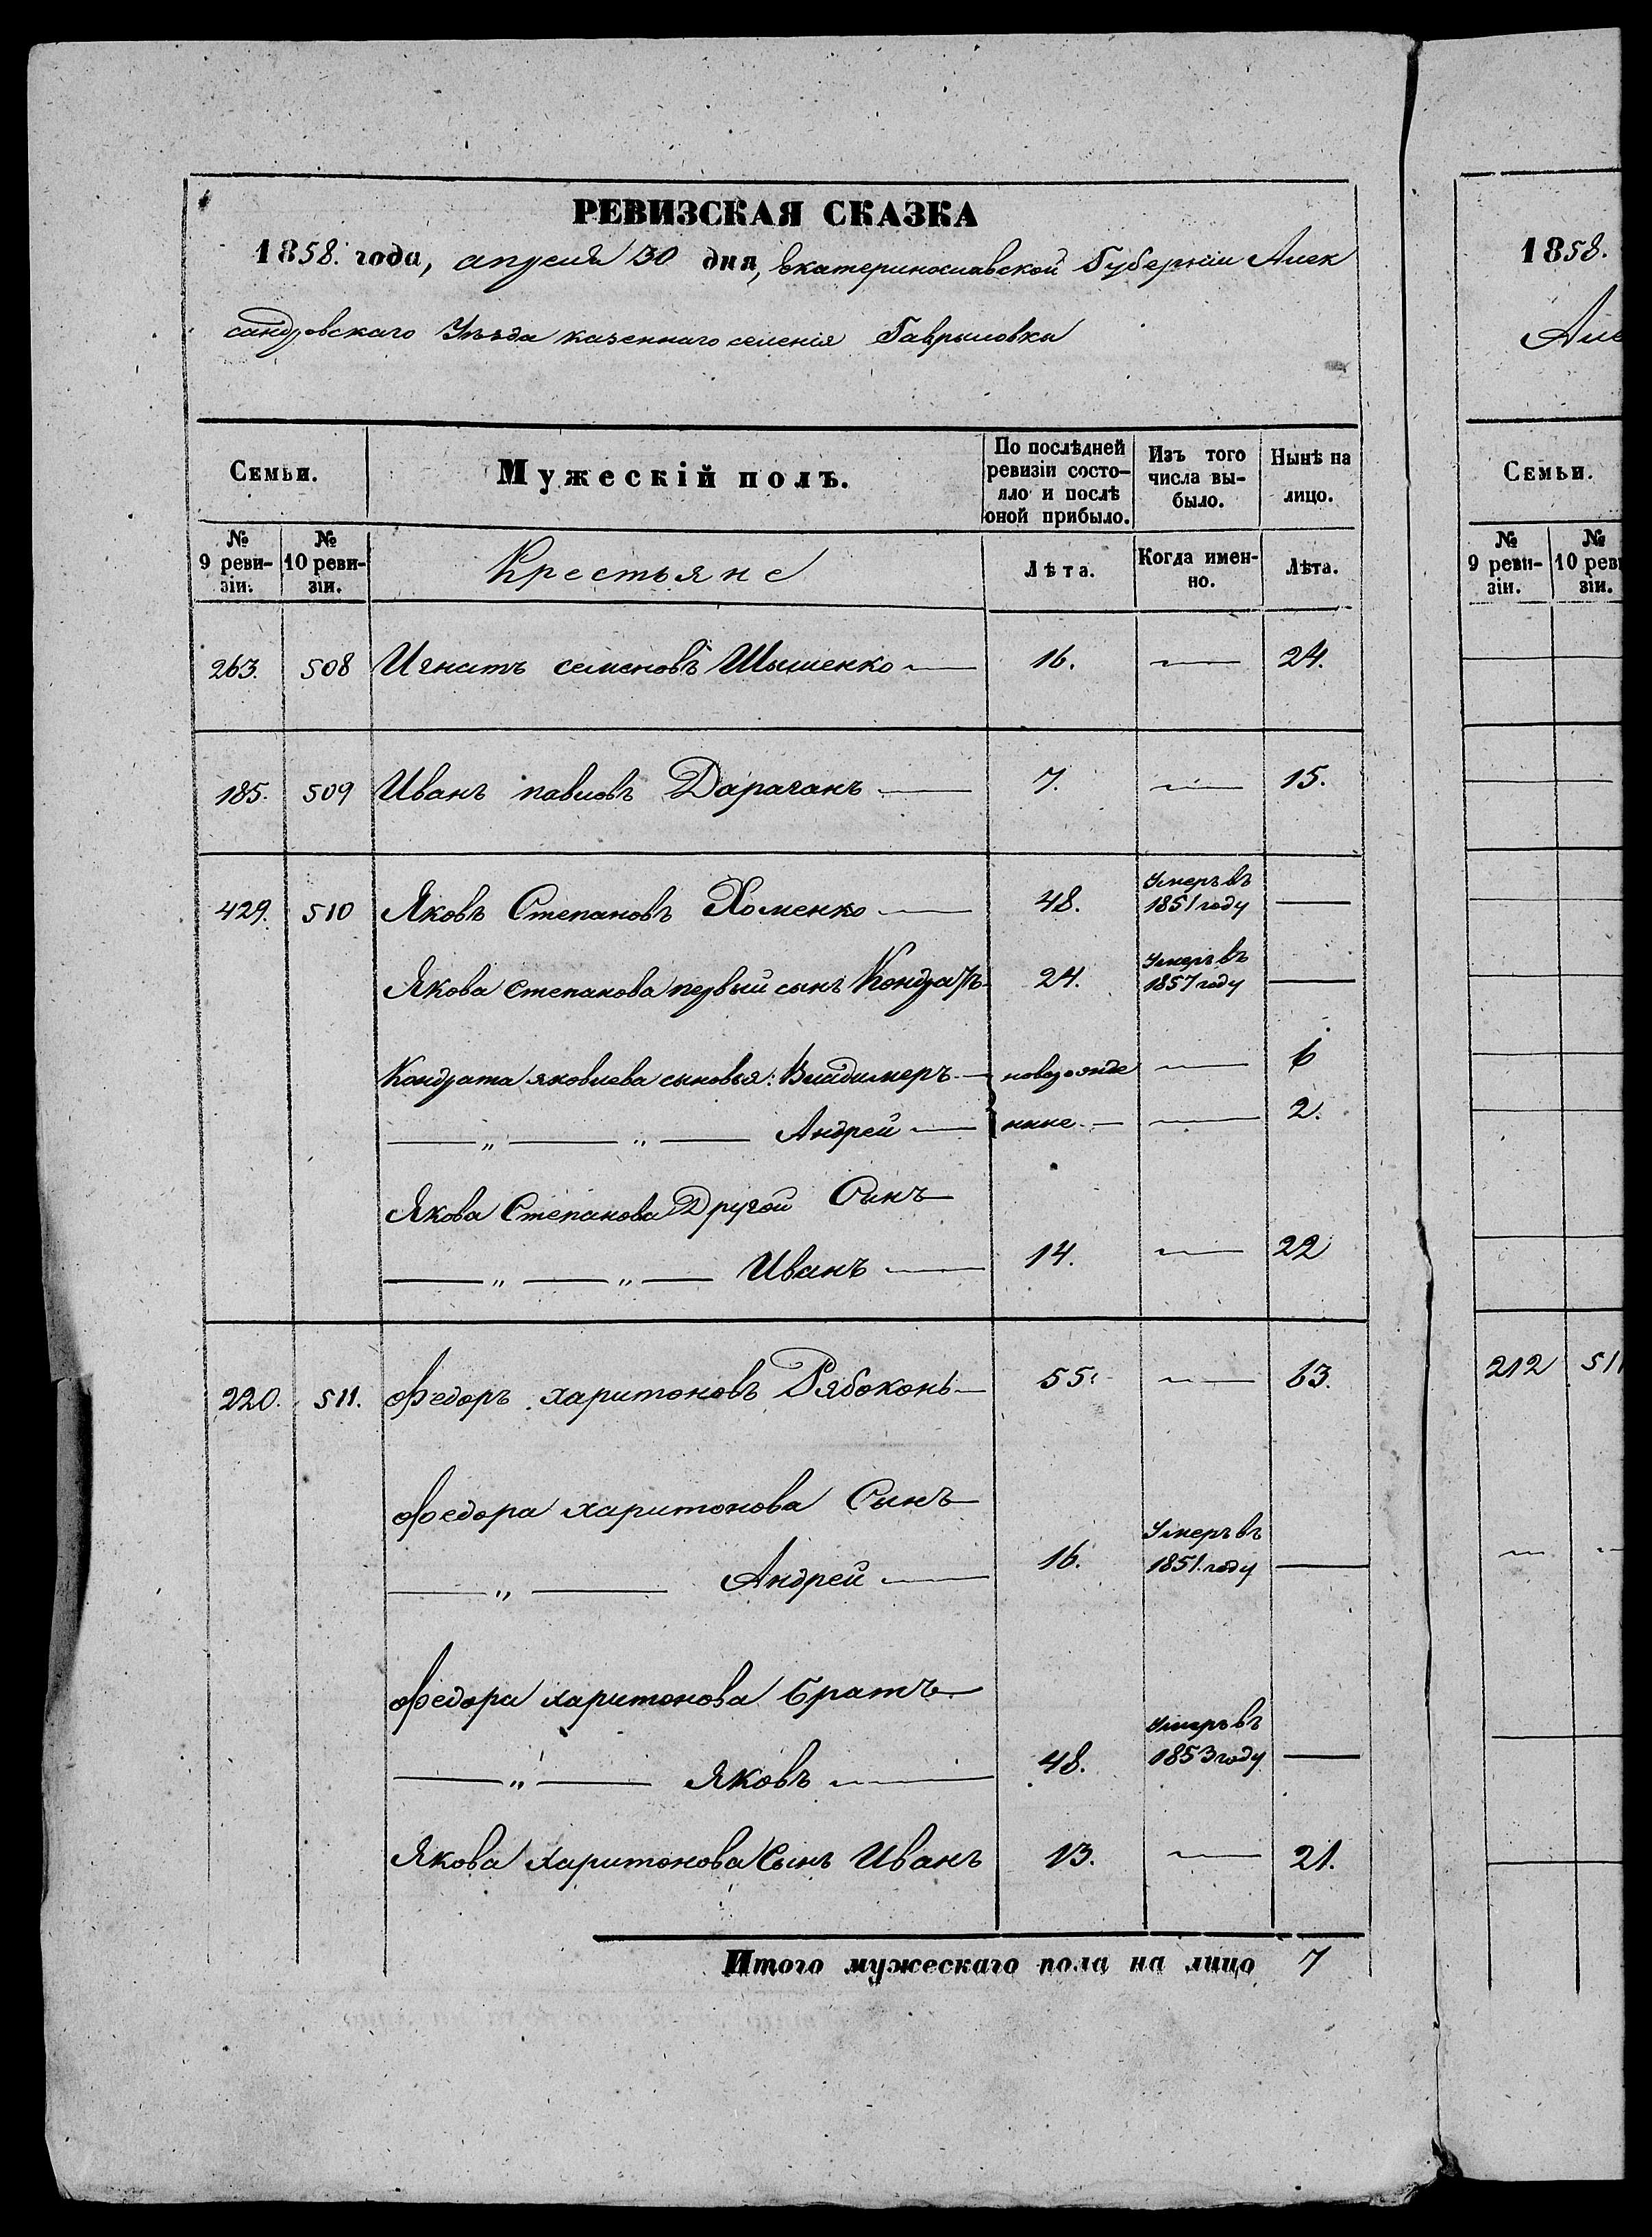 РЕВИЗСКАЯ СКАЗКА
1858. года, апреля 30 дня, Екатеринославской Губернии Алек
сандровскаго Уѣзда казеннаго селенія Гаврыловки
Семьи.
Мужескій полъ.
По послѣдней ревизіи состо-
яло и послѣ оной прибыло.
Изъ того числа вы-
было.
Нынѣ на лицо.
№ 9 реви-
зіи.
№ 10 реви-
зіи.
Крестьяне
Лѣта.
Когда имен-
но.
Лѣта.
263. 508 Игнатъ семеновъ Шышенко — 16. — 24.
185. 509 Иванъ павловъ Дараганъ — 7. — 15.
429. 510 Яковъ Степановъ Хоменко — 48. Умеръ въ 1851 году —
Якова степанова первый сынъ Кондратъ 24. Умеръ въ 1857 году —
Кондрата яковлева сыновья: Владимеръ — новорожде — 6
— „ — „ — Андрей — нные — — 2.
Якова Степанова Другой Сынъ
— „ — „ — Иванъ — 14. — 22
220. 511. Федоръ харитоновъ Рябоконь — 55. — 63.
Федора харитонова Сынъ
— „ — Андрей — 16. Умеръ въ 1851 году —
Федора харитонова братъ
— „ — Яковъ — 48. Умеръ въ 1853 году —
Якова харитонова Сынъ Иванъ 13. — 21.
Итого мужескаго пола на лицо 7
1858.
Але
Семьи.
№ 9 реви-
зіи.
№ 10 рев
зіи.
212 511